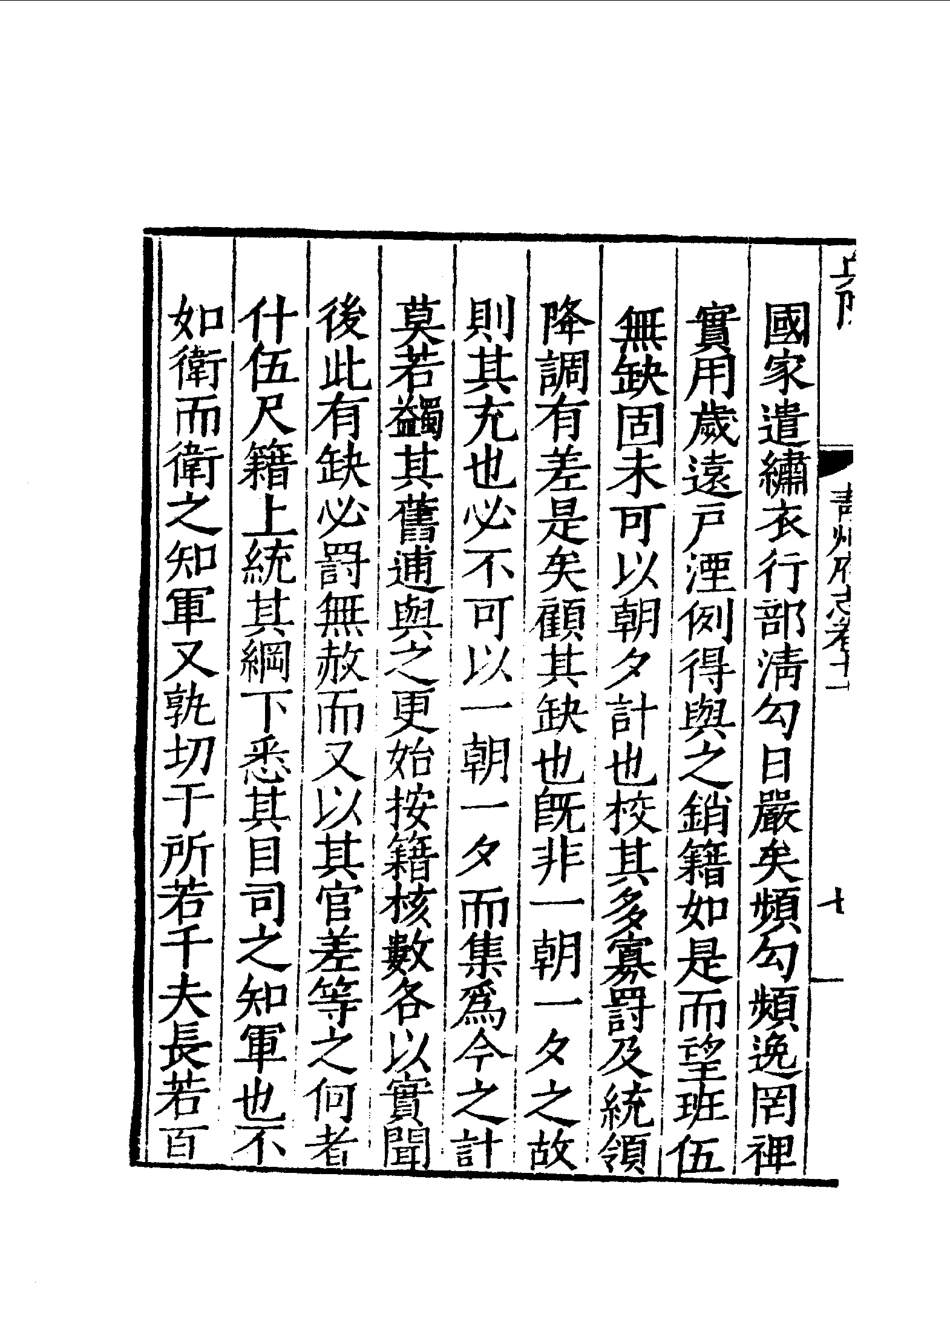 青州府志卷十一
七
國家遣繡衣行部淸勾日嚴矣頻勾頻逸罔裨
實用歲遠戸湮例得與之銷籍如是而望班伍
無缺固未可以朝夕計也校其多寡罰及統領
降調有差是矣顧其缺也旣非一朝一夕之故
則其充也必不可以一朝一夕而集爲今之計
莫若蠲其舊逋與之更始按籍核數各以實聞
後此有缺必罰無赦而又以其官差等之何者
什伍尺籍上統其綱下悉其目司之知軍也不
如衛而衛之知軍又孰切于所若千夫長若百